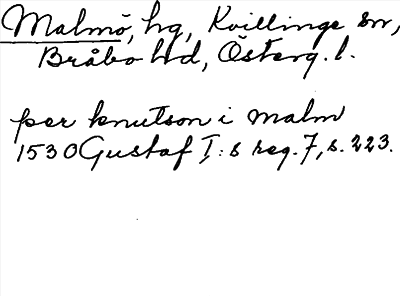 Malmö, hg, Kvillinge sn,
Bråbo hd, Österg. l.
per knutson i malm
1530 Gustaf I:s reg. 7, s. 223.